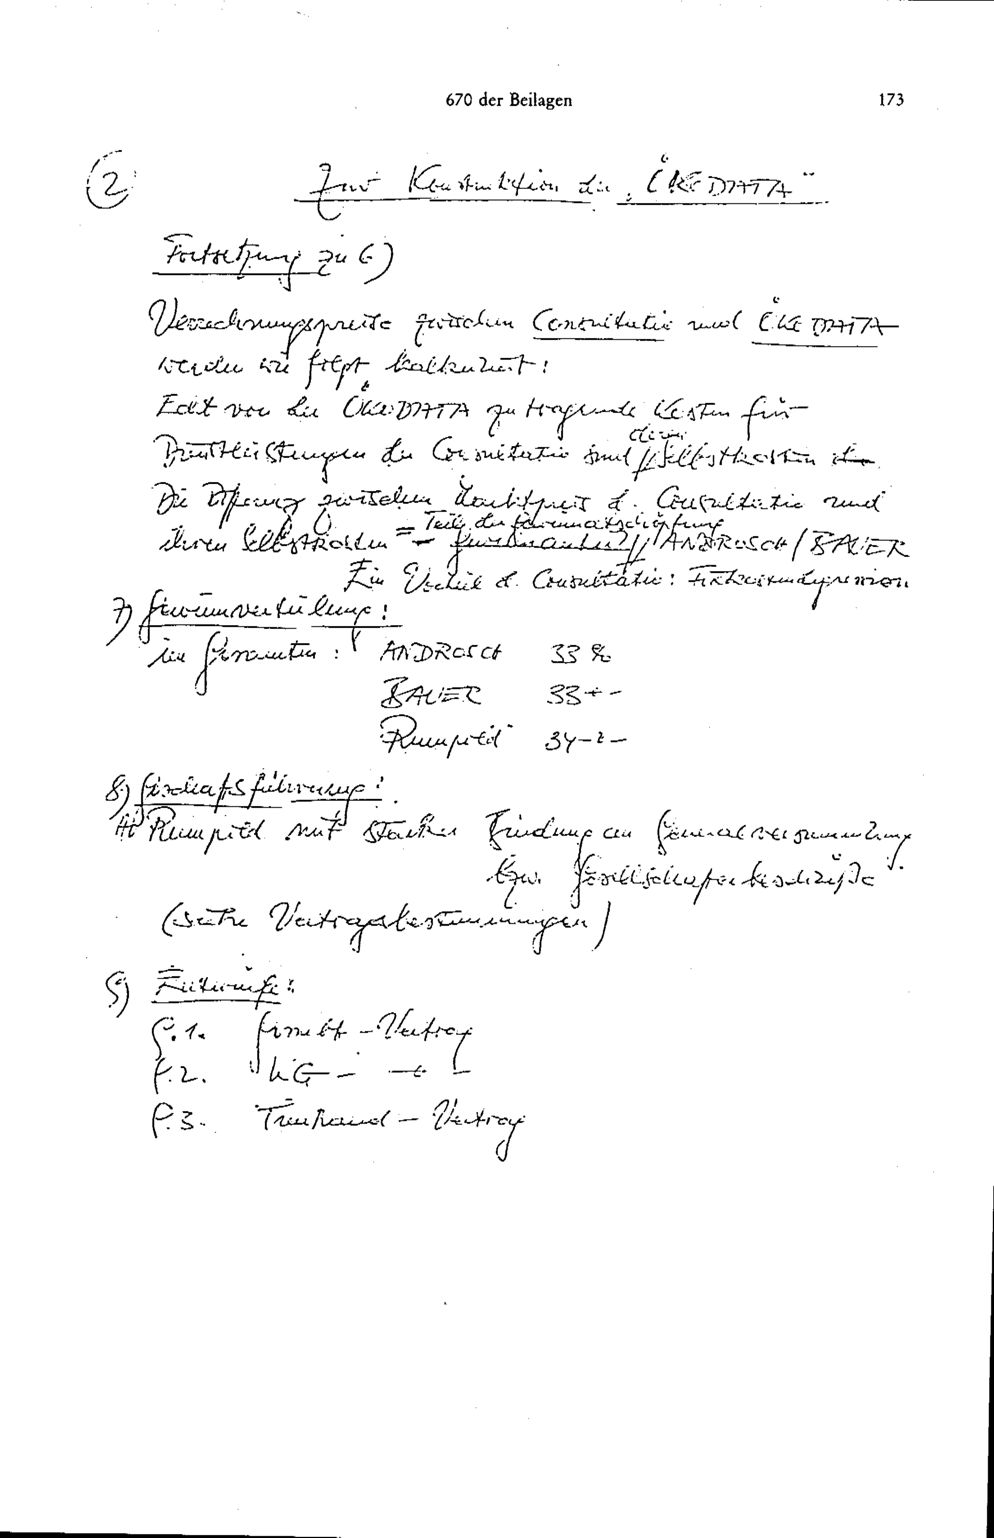 670 der Beilagen 173
2 Zur Konstruktion der „ÖKODATA"
Fortsetzung zu 6)
Verrechnungspreise zwischen Consultatio und ÖKODATA
werden wie folgt kalkuliert:
Echt von der ÖKODATA zu tragende Kosten für
Dienstleistungen der Consultatio sind
deren
Selbstkosten
Die Differenz zwischen Marktpreis d. Consultatio und
= Teil der Gewinnabschöpfung
ihren Selbstkosten = Gewinnanteil ANDROSCH / BAUER
Ein Vorteil d. Consultatio: Fixkostendegression
7) Gewinnverteilung:
im Gesamten: ANDROSCH 33 %
BAUER 33 -"-
Rumpold 34 -"-
8) Geschäftsführung:
Rumpold mit starker Bindung an Generalversammlung
bzw. Gesellschafterbeschlüsse.
(siehe Vertragsbestimmungen)
9) Entwürfe:
9.1. GesmbH-Vertrag
9.2. KG- -"-
9.3. Treuhand-Vertrag